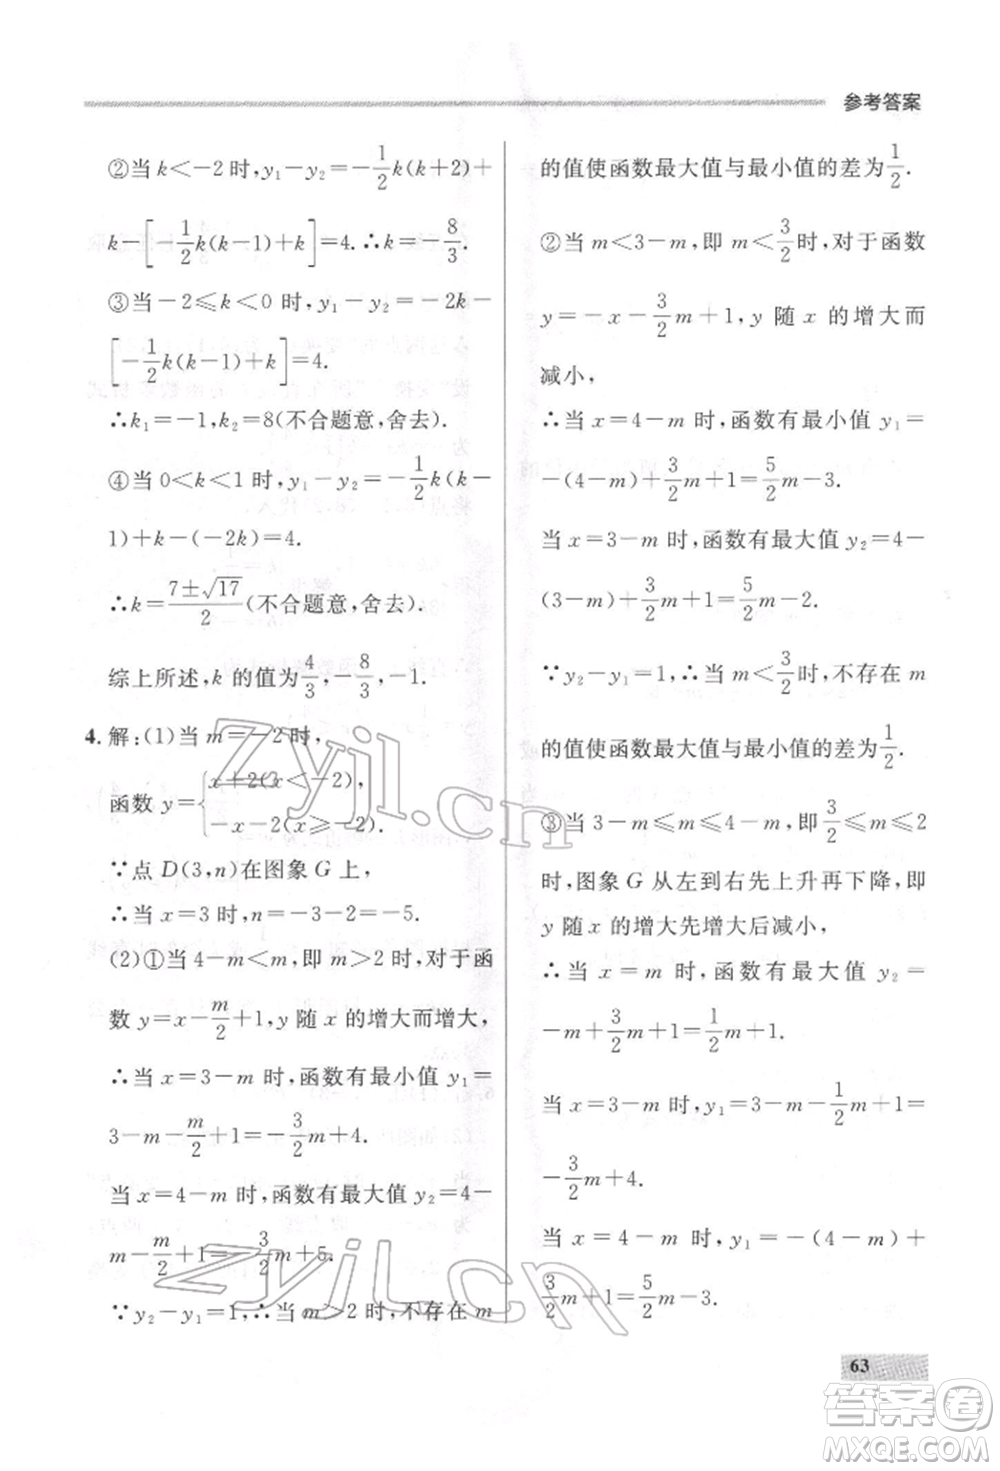 参考答案
②当 k<-2 时,y₁-y₂=-1/2k(k+2)+
k-[-1/2k(k-1)+k]=4.∴k=-8/3.
③当-2≤k<0 时,y₁-y₂=-2k-
[-1/2k(k-1)+k]=4.
∴k₁=-1,k₂=8(不合题意,舍去).
④当 0<k<1 时,y₁-y₂=-1/2k(k-
1)+k-(-2k)=4.
∴k=(7±√17)/2(不合题意,舍去).
综上所述,k 的值为4/3,-8/3,-1.
4.解:(1)当 m=-2时,
函数 y={x+2(x<-2),
-x-2(x≥-2).
∵点 D(3,n)在图象 G 上,
∴当 x=3 时,n=-3-2=-5.
(2)①当 4-m<m,即 m>2 时,对于函
数 y=x-m/2+1,y 随 x 的增大而增大,
∴当 x=3-m 时,函数有最小值 y₁=
3-m-m/2+1=-3/2m+4.
当 x=4-m 时,函数有最大值 y₂=4-
m-m/2+1=-3/2m+5.
∵y₂-y₁=1,∴当 m>2 时,不存在 m
的值使函数最大值与最小值的差为1/2.
②当 m<3-m,即 m<3/2时,对于函数
y=-x-3/2m+1,y 随 x 的增大而
减小,
∴当 x=4-m 时,函数有最小值 y₁=
-(4-m)+3/2m+1=5/2m-3.
当 x=3-m 时,函数有最大值 y₂=4-
(3-m)+3/2m+1=5/2m-2.
∵y₂-y₁=1,∴当 m<3/2时,不存在 m
的值使函数最大值与最小值的差为1/2.
③当 3-m≤m≤4-m,即3/2≤m≤2
时,图象 G 从左到右先上升再下降,即
y 随 x 的增大先增大后减小,
∴当 x=m 时,函数有最大值 y₂=
-m+3/2m+1=1/2m+1.
当 x=3-m 时,y₁=3-m-1/2m+1=
-3/2m+4.
当 x=4-m 时,y₁=-(4-m)+
3/2m+1=5/2m-3.
63
zyjl.cn
zyjl.cn
答案圈
MXQE.COM